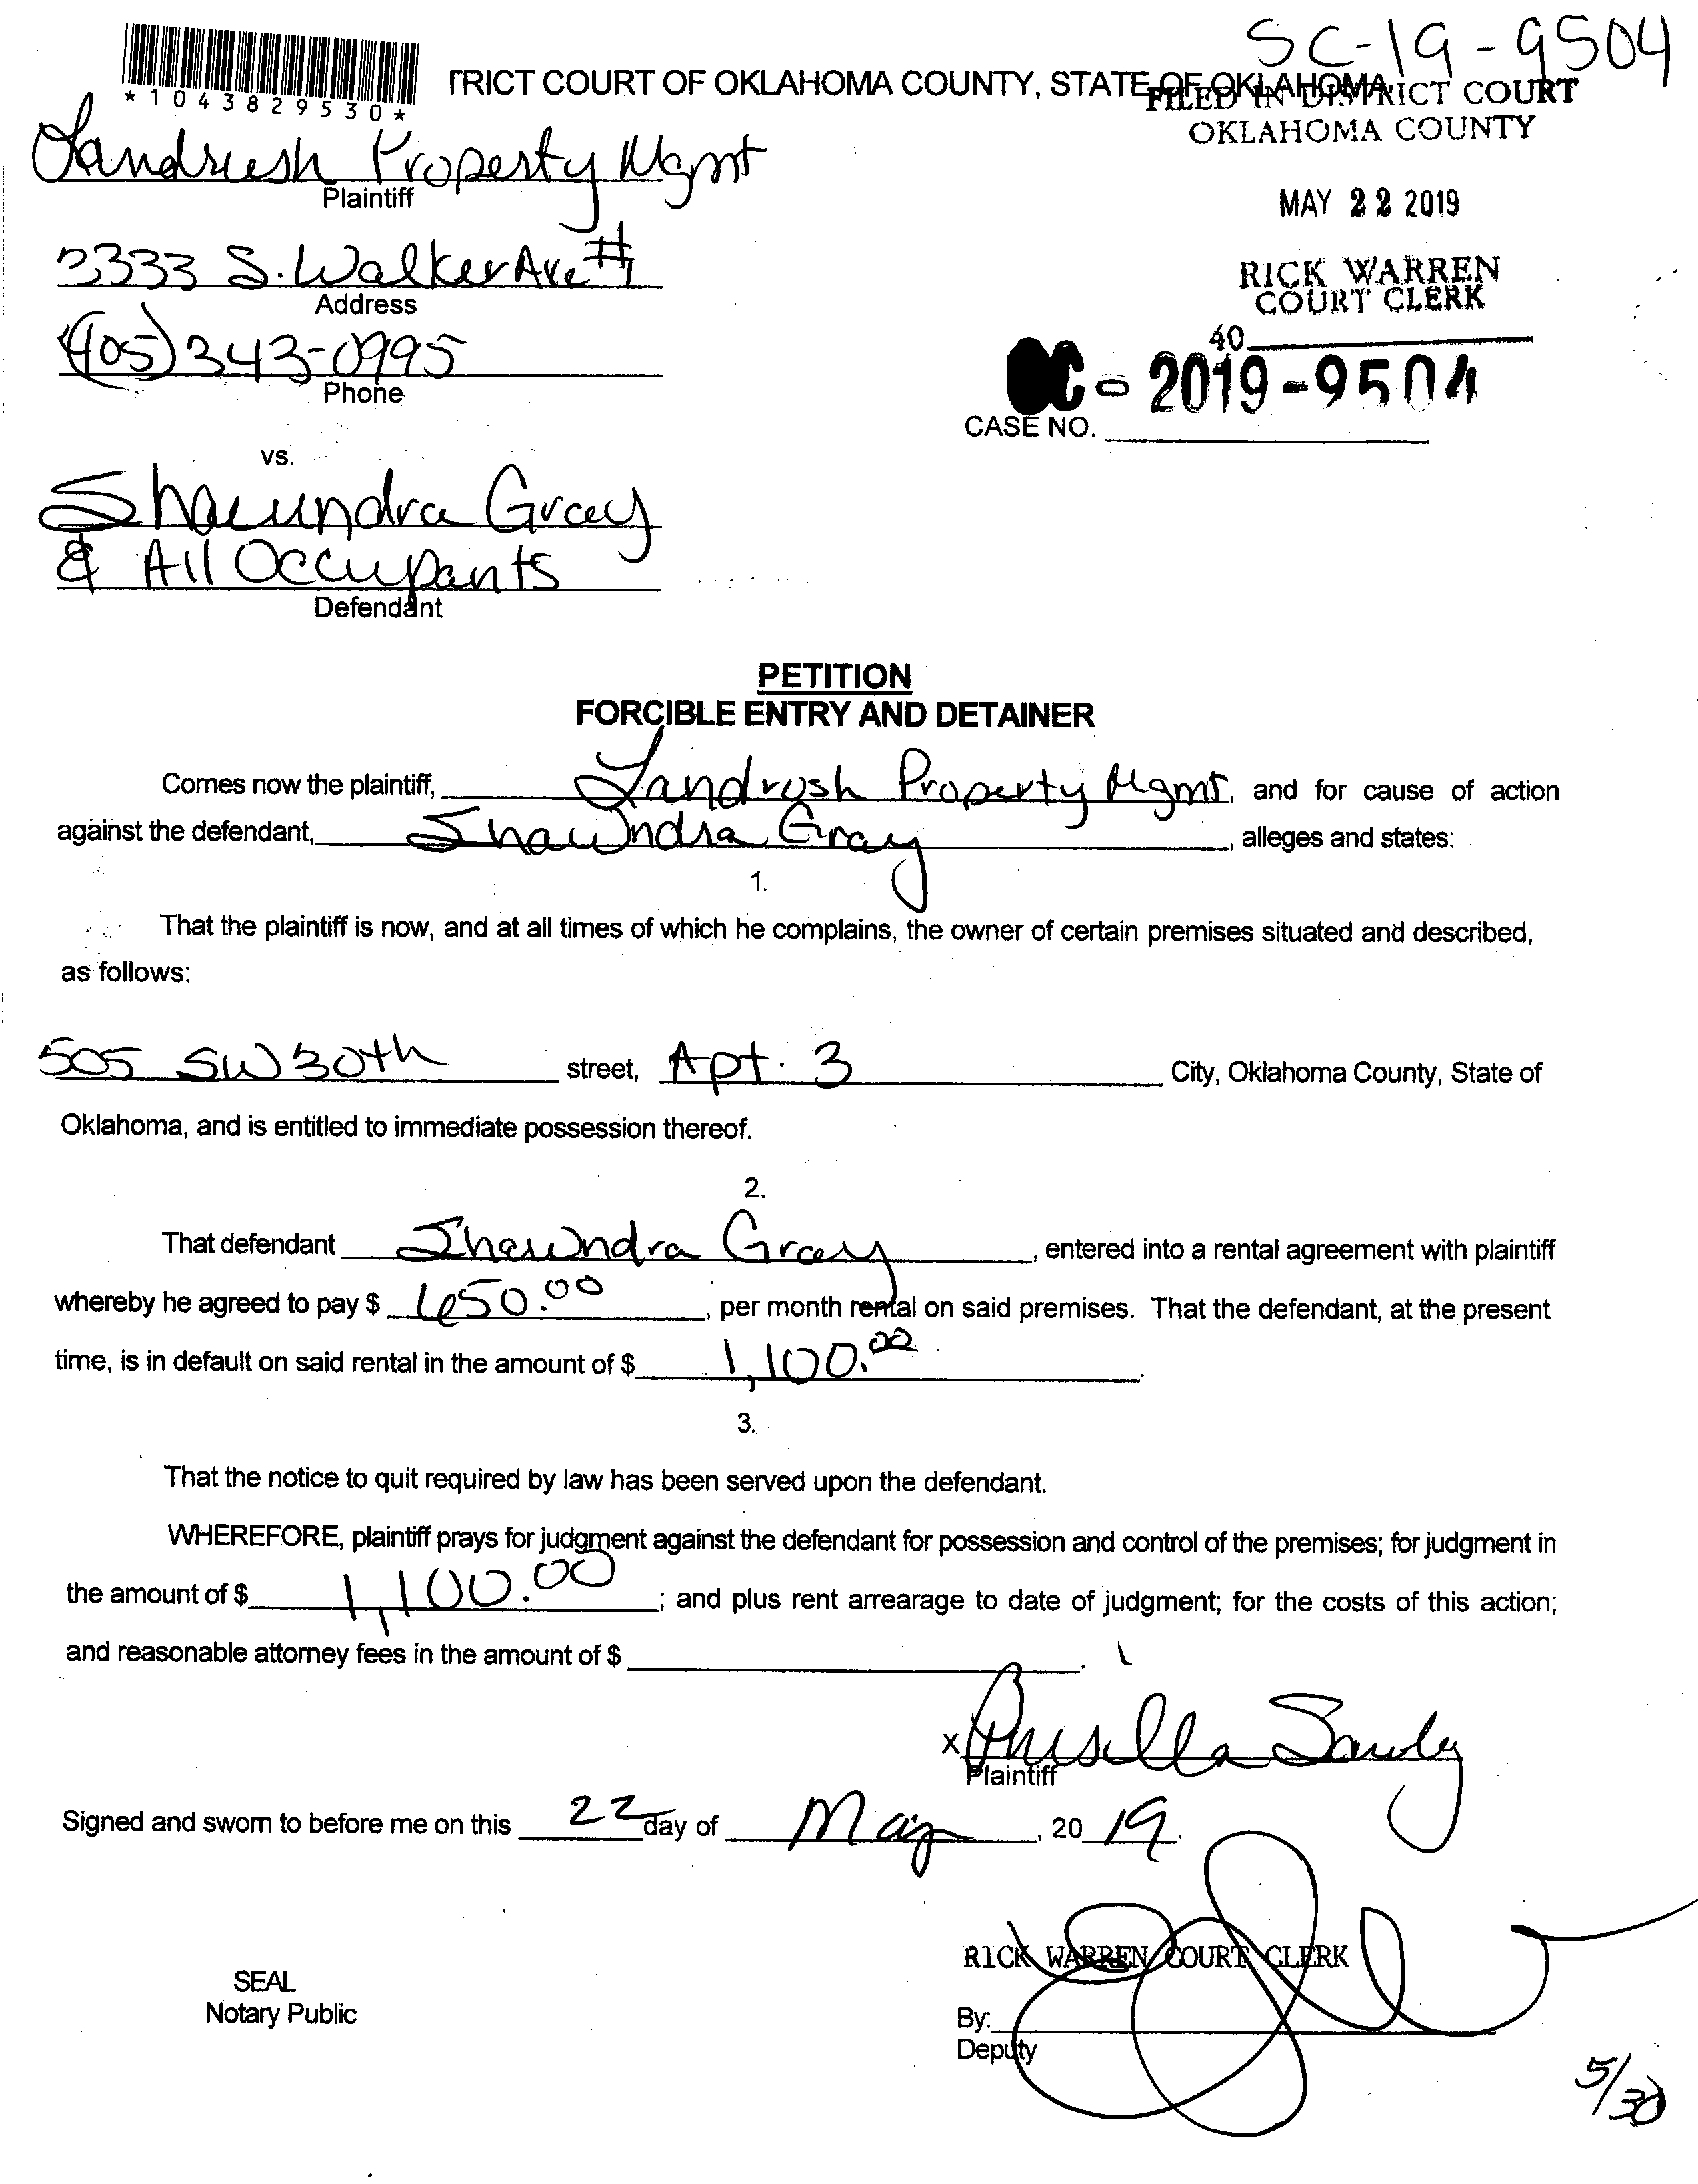 SC-19-9504
*1043829530*
TRICT COURT OF OKLAHOMA COUNTY, STATE OF OKLAHOMA
FILED IN DISTRICT COURT
OKLAHOMA COUNTY
Landrush Property Mgmt
Plaintiff
MAY 22 2019
3333 S. Walker Ave #1
Address
RICK WARREN
COURT CLERK
40
(405) 343-0995
Phone
C - 2019-9504
CASE NO.
vs.
Shawndra Gray
& All Occupants
Defendant
PETITION
FORCIBLE ENTRY AND DETAINER
Comes now the plaintiff, Landrush Property Mgmt, and for cause of action
against the defendant, Shawndra Gray, alleges and states:
1.
That the plaintiff is now, and at all times of which he complains, the owner of certain premises situated and described,
as follows:
505 SW 30th street, Apt. 3 City, Oklahoma County, State of
Oklahoma, and is entitled to immediate possession thereof.
2.
That defendant Shawndra Gray, entered into a rental agreement with plaintiff
whereby he agreed to pay $ 650.00, per month rental on said premises. That the defendant, at the present
time, is in default on said rental in the amount of $ 1,100.00.
3.
That the notice to quit required by law has been served upon the defendant.
WHEREFORE, plaintiff prays for judgment against the defendant for possession and control of the premises; for judgment in
the amount of $ 1,100.00; and plus rent arrearage to date of judgment; for the costs of this action;
and reasonable attorney fees in the amount of $ .
x Prisilla
Plaintiff
Signed and sworn to before me on this 22 day of May, 20 19.
RICK WARREN COURT CLERK
SEAL
Notary Public
By:
Deputy
5/30